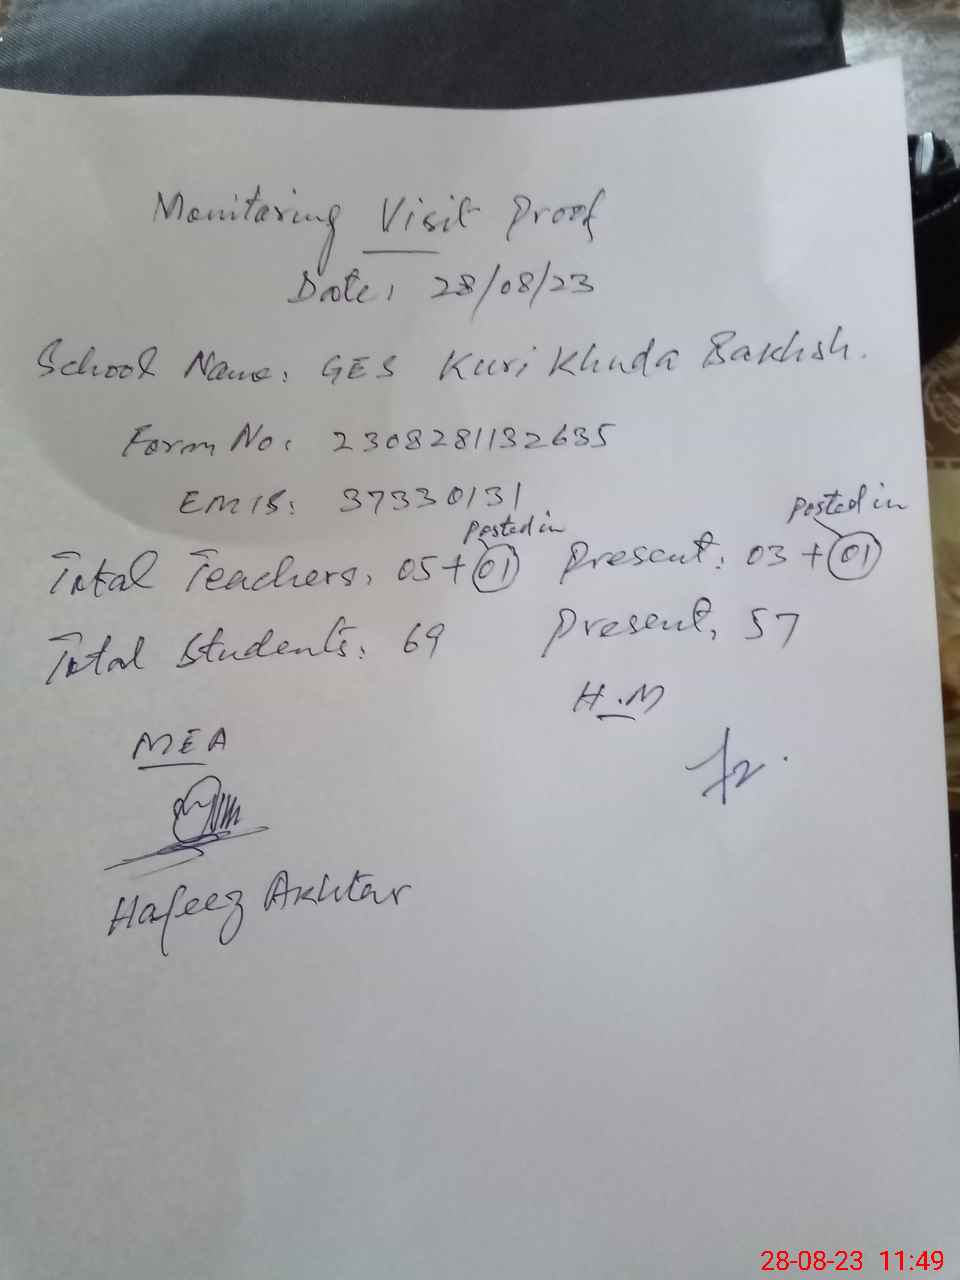 Monitoring Visit Proof
Date: 28/08/23
School Name: GES Kuri Khuda Bakhsh.
Form No: 2308281132635
EMIS: 37330131
posted in posted in
Total Teachers: 05+01 Present: 03+01
Total Students: 69 Present: 57
H.M
MEA
Hafeez Akhtar
28-08-23 11:49